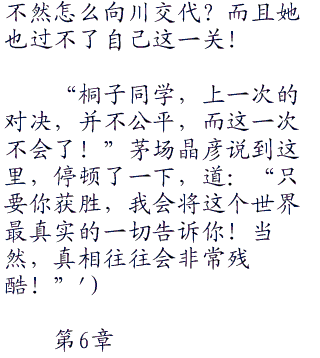 不然怎么向川交代？而且她
也过不了自己这一关！
“桐子同学，上一次的
对决，并不公平，而这一次
不会了！”茅场晶彦说到这
里，停顿了一下，道：“只
要你获胜，我会将这个世界
最真实的一切告诉你！当
然，真相往往会非常残
酷！”′）
第6章